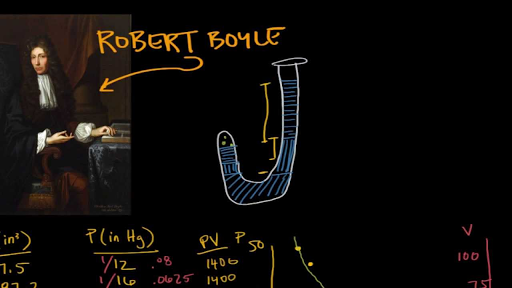 ROBERT BOYLE
(in³) P(in Hg) PV P 50 V
7.5 1/12 .08 1400 100
1/16 .0625 1400 75